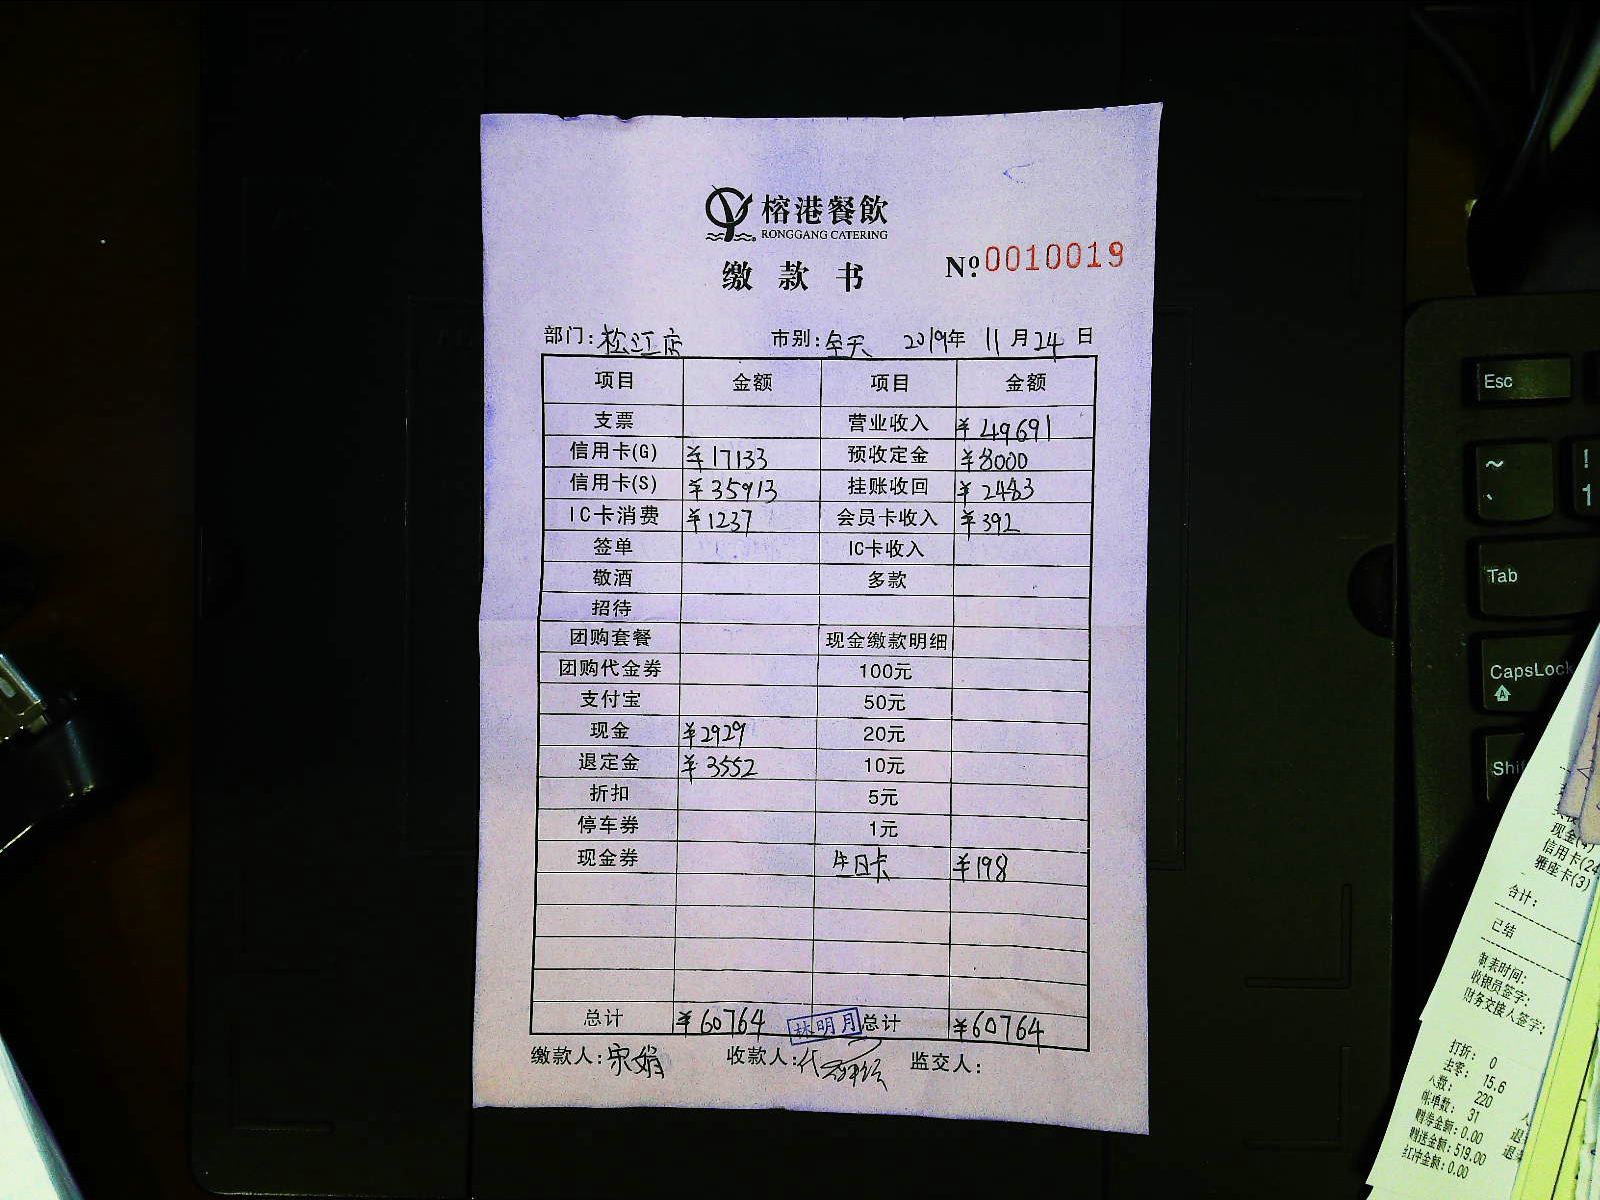 榕港餐飲
RONGGANG CATERING
缴款书
Nº 0010019
部门:松江店 市别:全天 2019年 11月24日
项目 金额 项目 金额
支票 营业收入 ¥49691
信用卡(G) ¥17133 预收定金 ¥8000
信用卡(S) ¥35913 挂账收回 ¥2483
IC卡消费 ¥1237 会员卡收入 ¥392
签单 IC卡收入
敬酒 多款
招待
团购套餐 现金缴款明细
团购代金券 100元
支付宝 50元
现金 ¥2929 20元
退定金 ¥3552 10元
折扣 5元
停车券 1元
现金券 生日卡 ¥198
总计 ¥60764 总计 ¥60764
林明月
缴款人:宋娟 收款人: 监交人:
Esc
~
、
!
1
Tab
CapsLock
Shif
现金(4)
信用卡(24
雅座卡(3)
合计:
已结
制表时间:
收银员签字:
财务交接人签字:
打折: 0
去零: 15.6
人数: 220
帐单数: 31
赠券金额:0.00
赠送金额:519.00
红冲金额:0.00